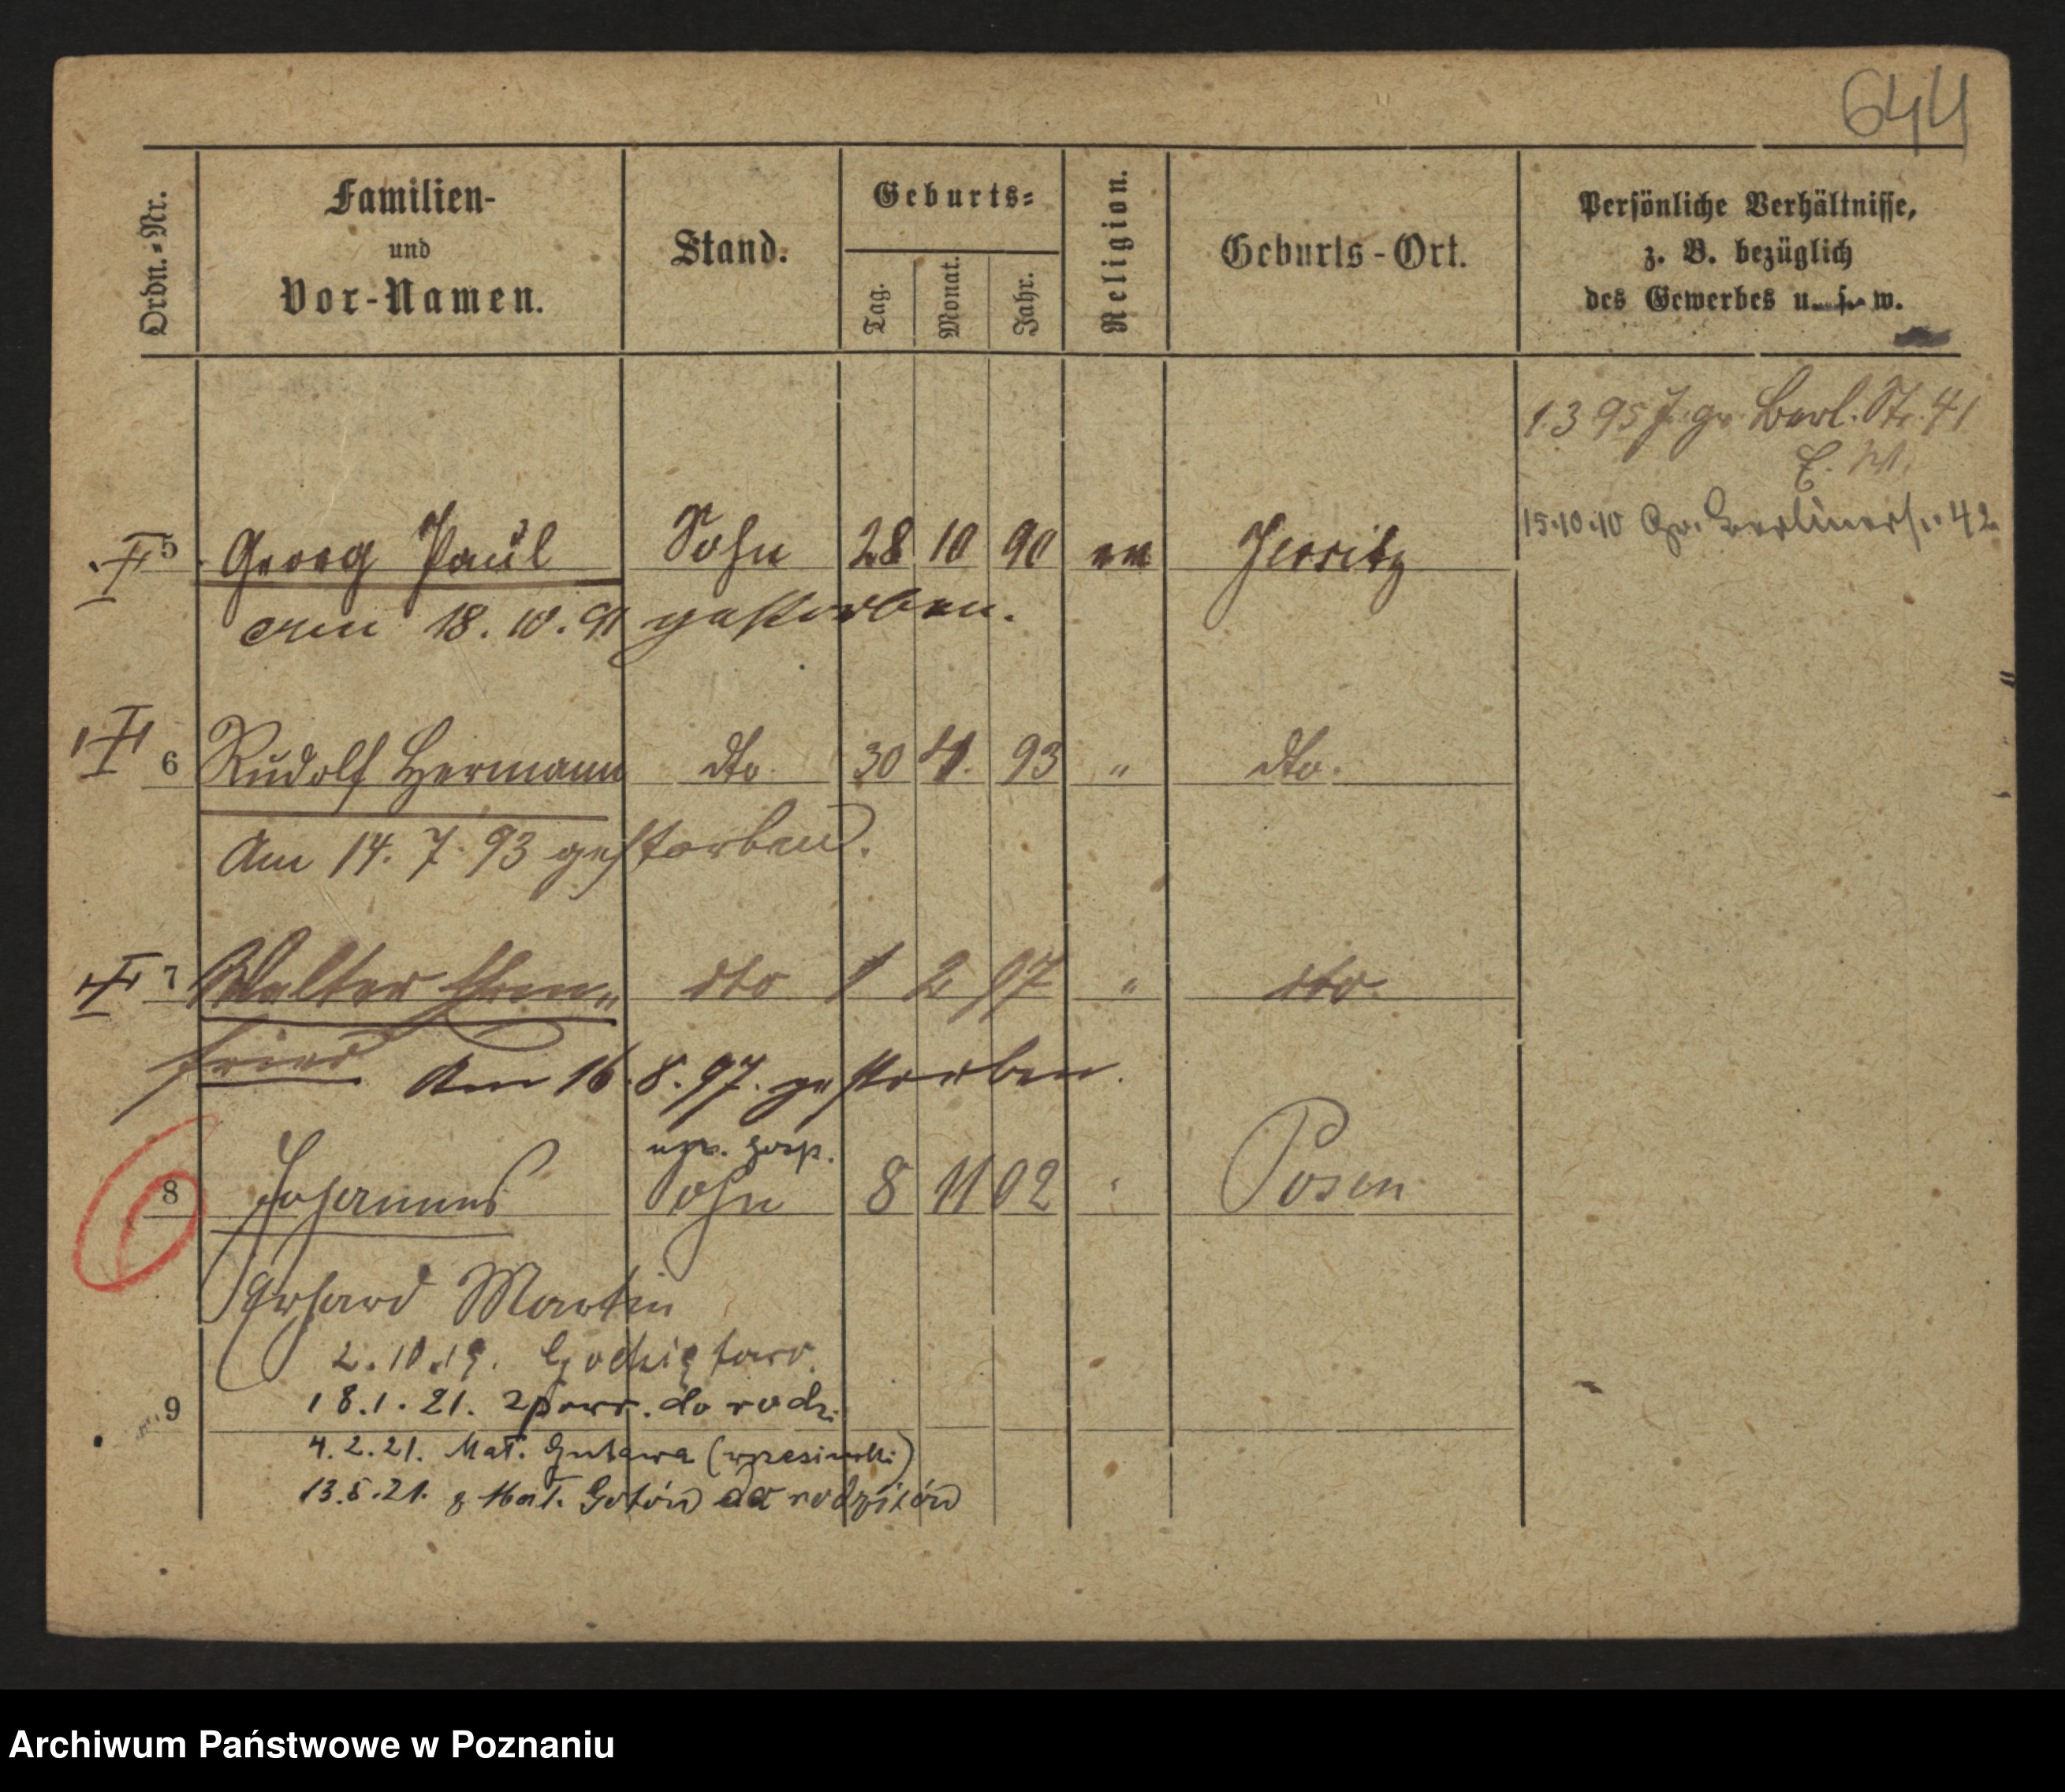 644
Ordn.-Nr.
Familien-
und
Vor-Namen.
Stand.
Geburts-
Tag.
Monat.
Jahr.
Religion.
Geburts-Ort.
Persönliche Verhältnisse,
z. B. bezüglich
des Gewerbes u. s. w.
1.3 95 J. gr. Berl. Str. 41
E. M.
15.10.10 Gr. Berlinerstr. 42
5 Georg Paul Sohn 28 10 90 ev Jersitz
am 18. 10. 91 gestorben.
6 Rudolf Hermann dto. 30 4. 93 " dto.
Am 14. 7. 93 gestorben.
7 Walter Ehren= dto 1 2 97 " dto.
fried Am 16. 8. 97. gestorben.
gosp.
8 Johannes Sohn 8 11 02 " Posen
Gerhard Martin
2.10.19. Godziętowo.
9 18.1.21. zpowr. do rodz.
4.2.21. Mał. Gutowa (wrzesiński)
13.5.21. z Mał. Gutów do rodziców
Archiwum Państwowe w Poznaniu